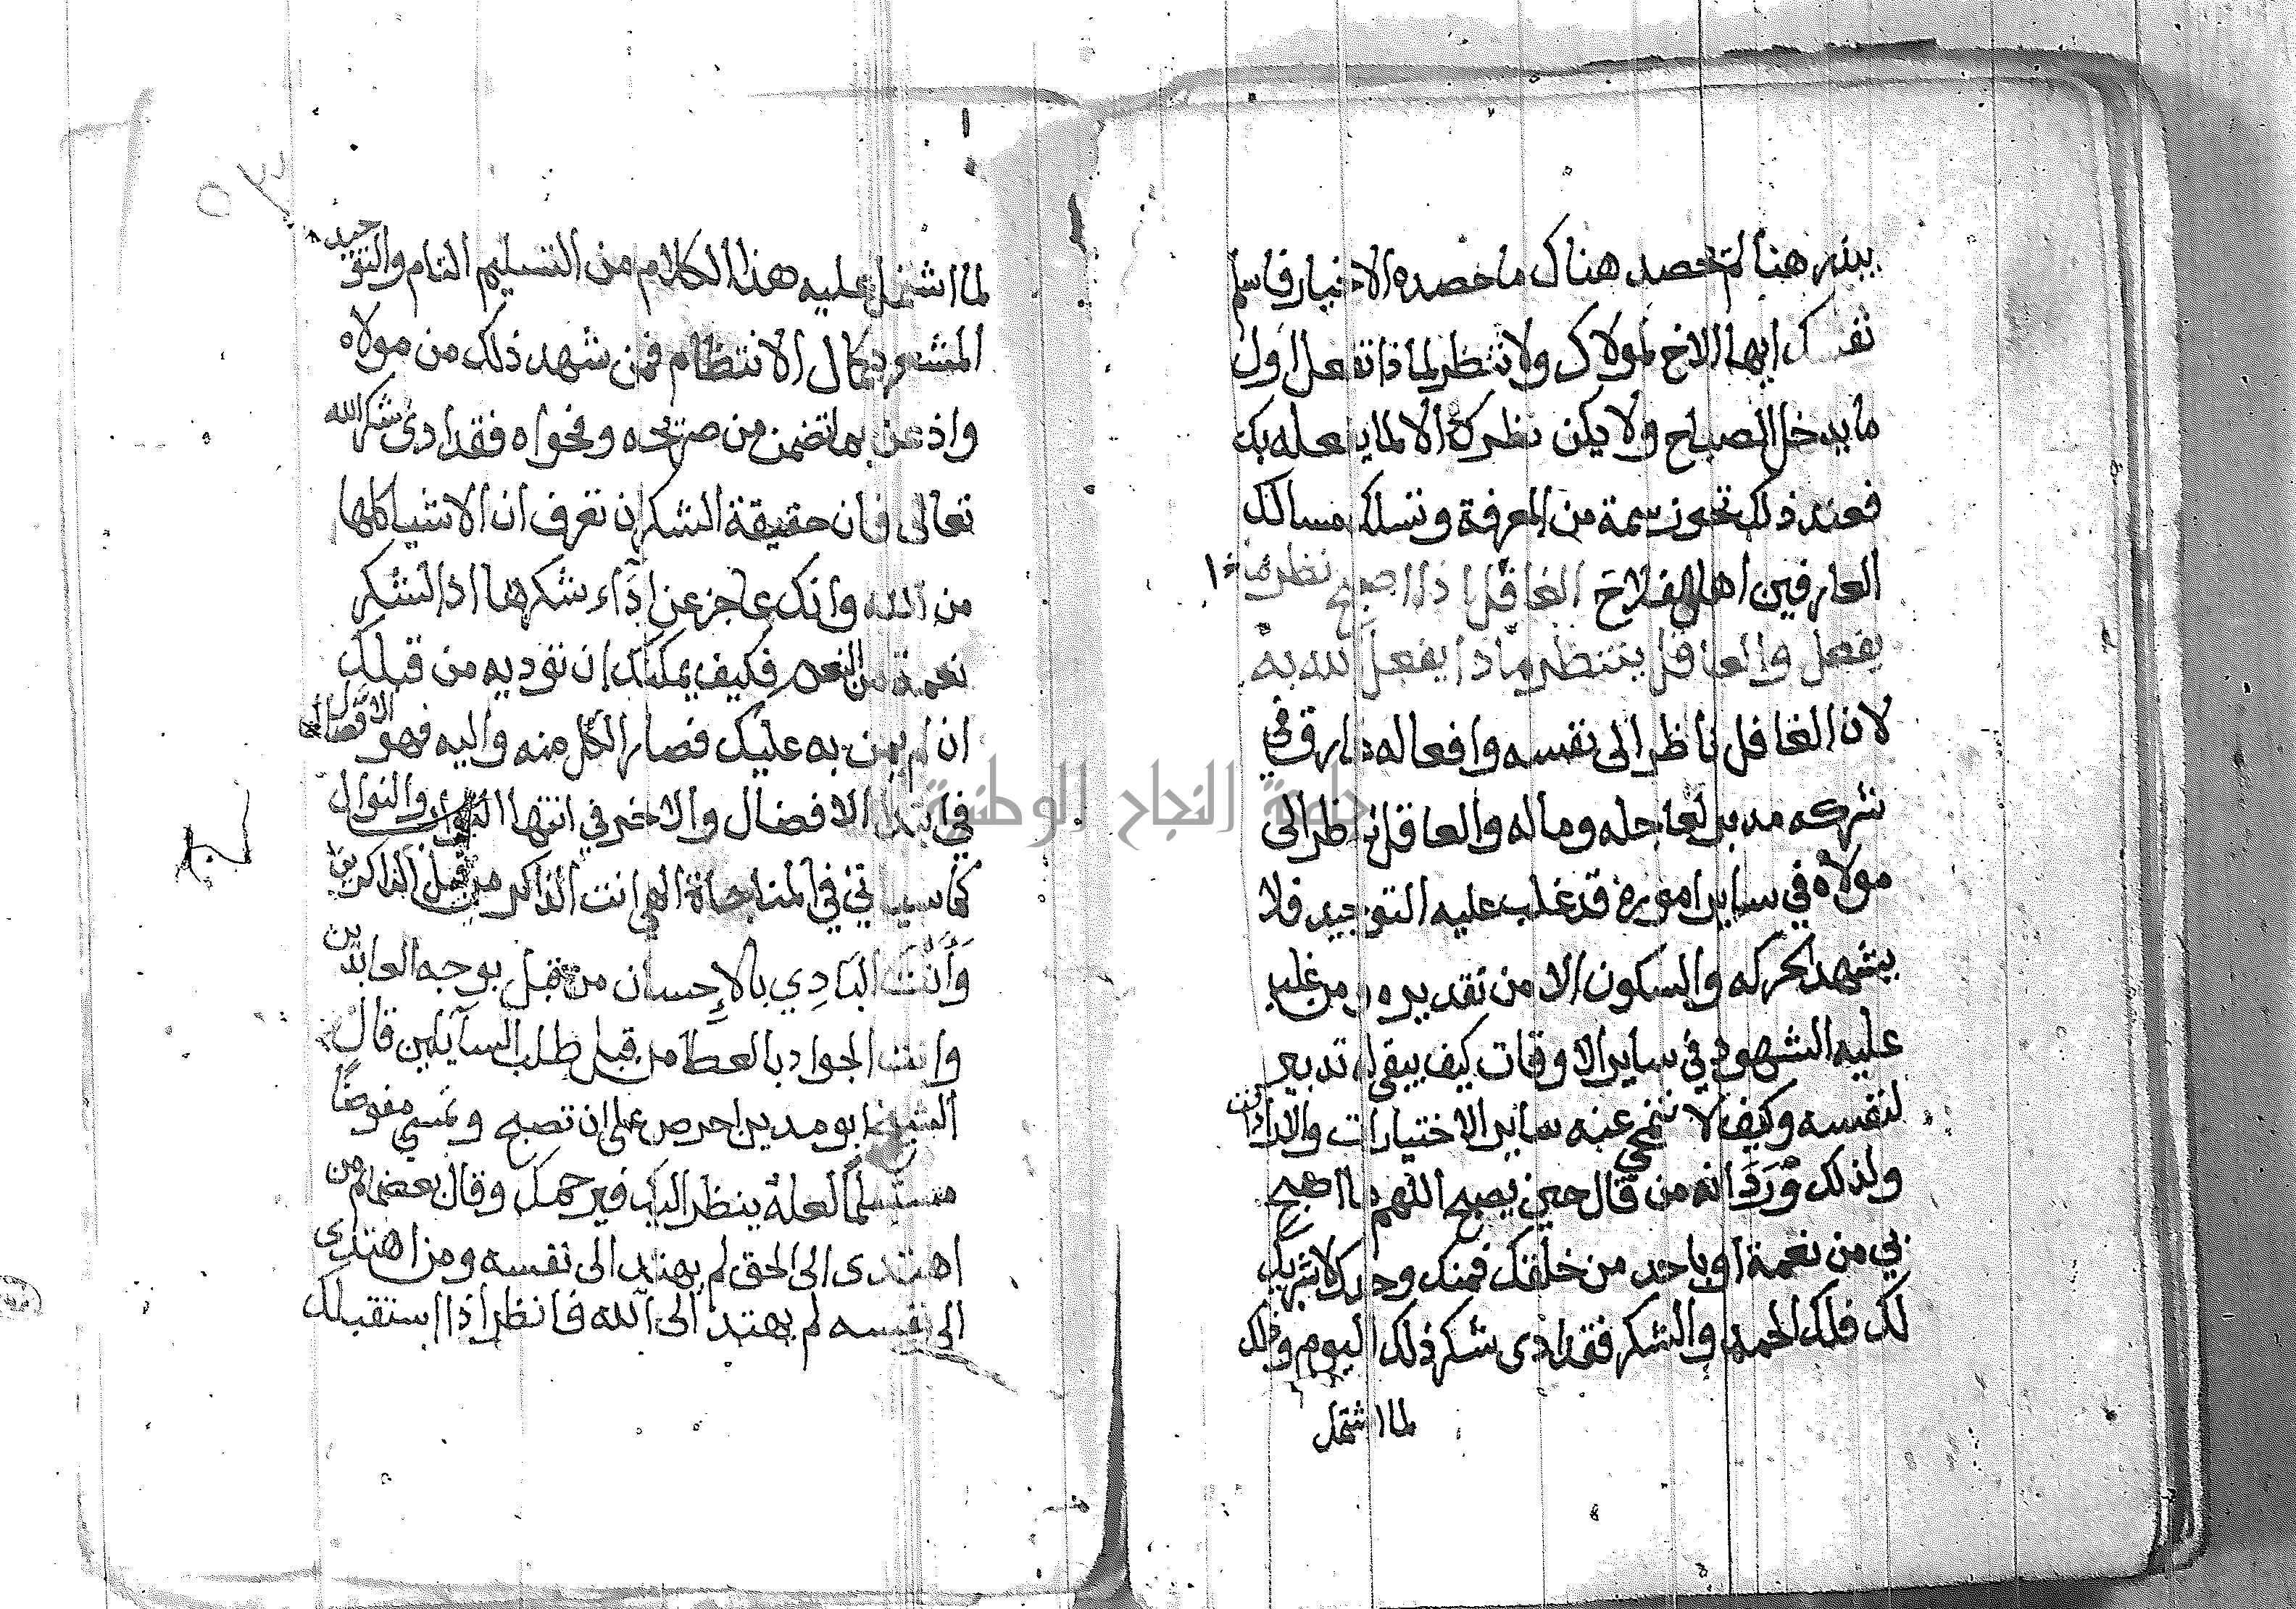 يبذر هنا لم يحصد هناك ما حصده الاخيار فاسلم
نفسك ايها الاخ لمولاك ولا تنظر لماذا تفعل اول
ما يدخل الصباح ولا يكن نظرك الا لما يفعله بك
فعند ذلك تحوز سمة من المعرفة وتسلك مسالك
العارفين اهل الفلاح الغافل اذا اصبح نظر ماذا
يفعل والعاقل ينتظر ماذا يفعل الله به
لان الغافل ناظر الى نفسه وافعاله غارق في
شركه مدبر لعاجله وماله والعاقل ناظر الى
مولاه في ساير اموره قد غلب عليه التوحيد فلا
يشهد الحركه والسكون الا من تقديره ومن غلب
عليه الشهود في ساير الاوقات كيف يبقى له تدبير
لنفسه وكيف لا تنمحي عنه ساير الاختيارات والارادات
ولذلك وَرَدَ انه من قال حين يصبح اللهم ما اصبح
بي من نعمة او باحد من خلقك فمنك وحدك لا شريك
لك فلك الحمد والشكر فقد ادى شكر ذلك اليوم وذلك
لما اشتمل
٥٣
لما اشتمل عليه هذا الكلام من التسليم التام والتوحيد
المشعر بكمال الانتظام فمن شهد ذلك من مولاه
واذعن بما تضمن من صريحه وفحواه فقد ادى شكر الله
تعالى فان حقيقة الشكر ان تعرف ان الاشيا كلها
من الله وانك عاجز عن ادآء شكرها اذ الشكر
نعمة من النعم فكيف يمكنك ان تؤديه من قبلك
ان لم يمن به عليك فصار الكل منه واليه فهو الاول
في ابتدا الافضال والاخر في انتها النوال
كما سياتي في المناجاة الهي انت الذاكر من قبل الذاكرين
وَأَنْتَ البَادِي بالإحسان من قبل توجه العابدين
وانت الجواد بالعطا من قبل طلب السآيلين قال
الشيخ ابو مدين احرص على ان تصبح وتمسي مفوضًا
مستسلمًا لعله ينظر اليك فيرحمك وقال بعضهم من
اهتدى الى الحق لم يهتد الى نفسه ومن اهتدى
الى نفسه لم يهتد الى الله فانظر اذا استقبلك
جامعة النجاح الوطنية